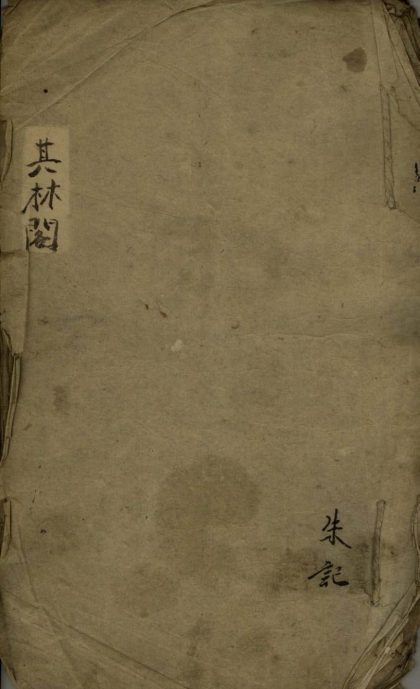 其林閣
朱記